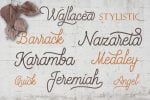 Wallacea STYLISTIC
Barrack Nazareta
Karamba Medaley
Quick Jeremiah Angel